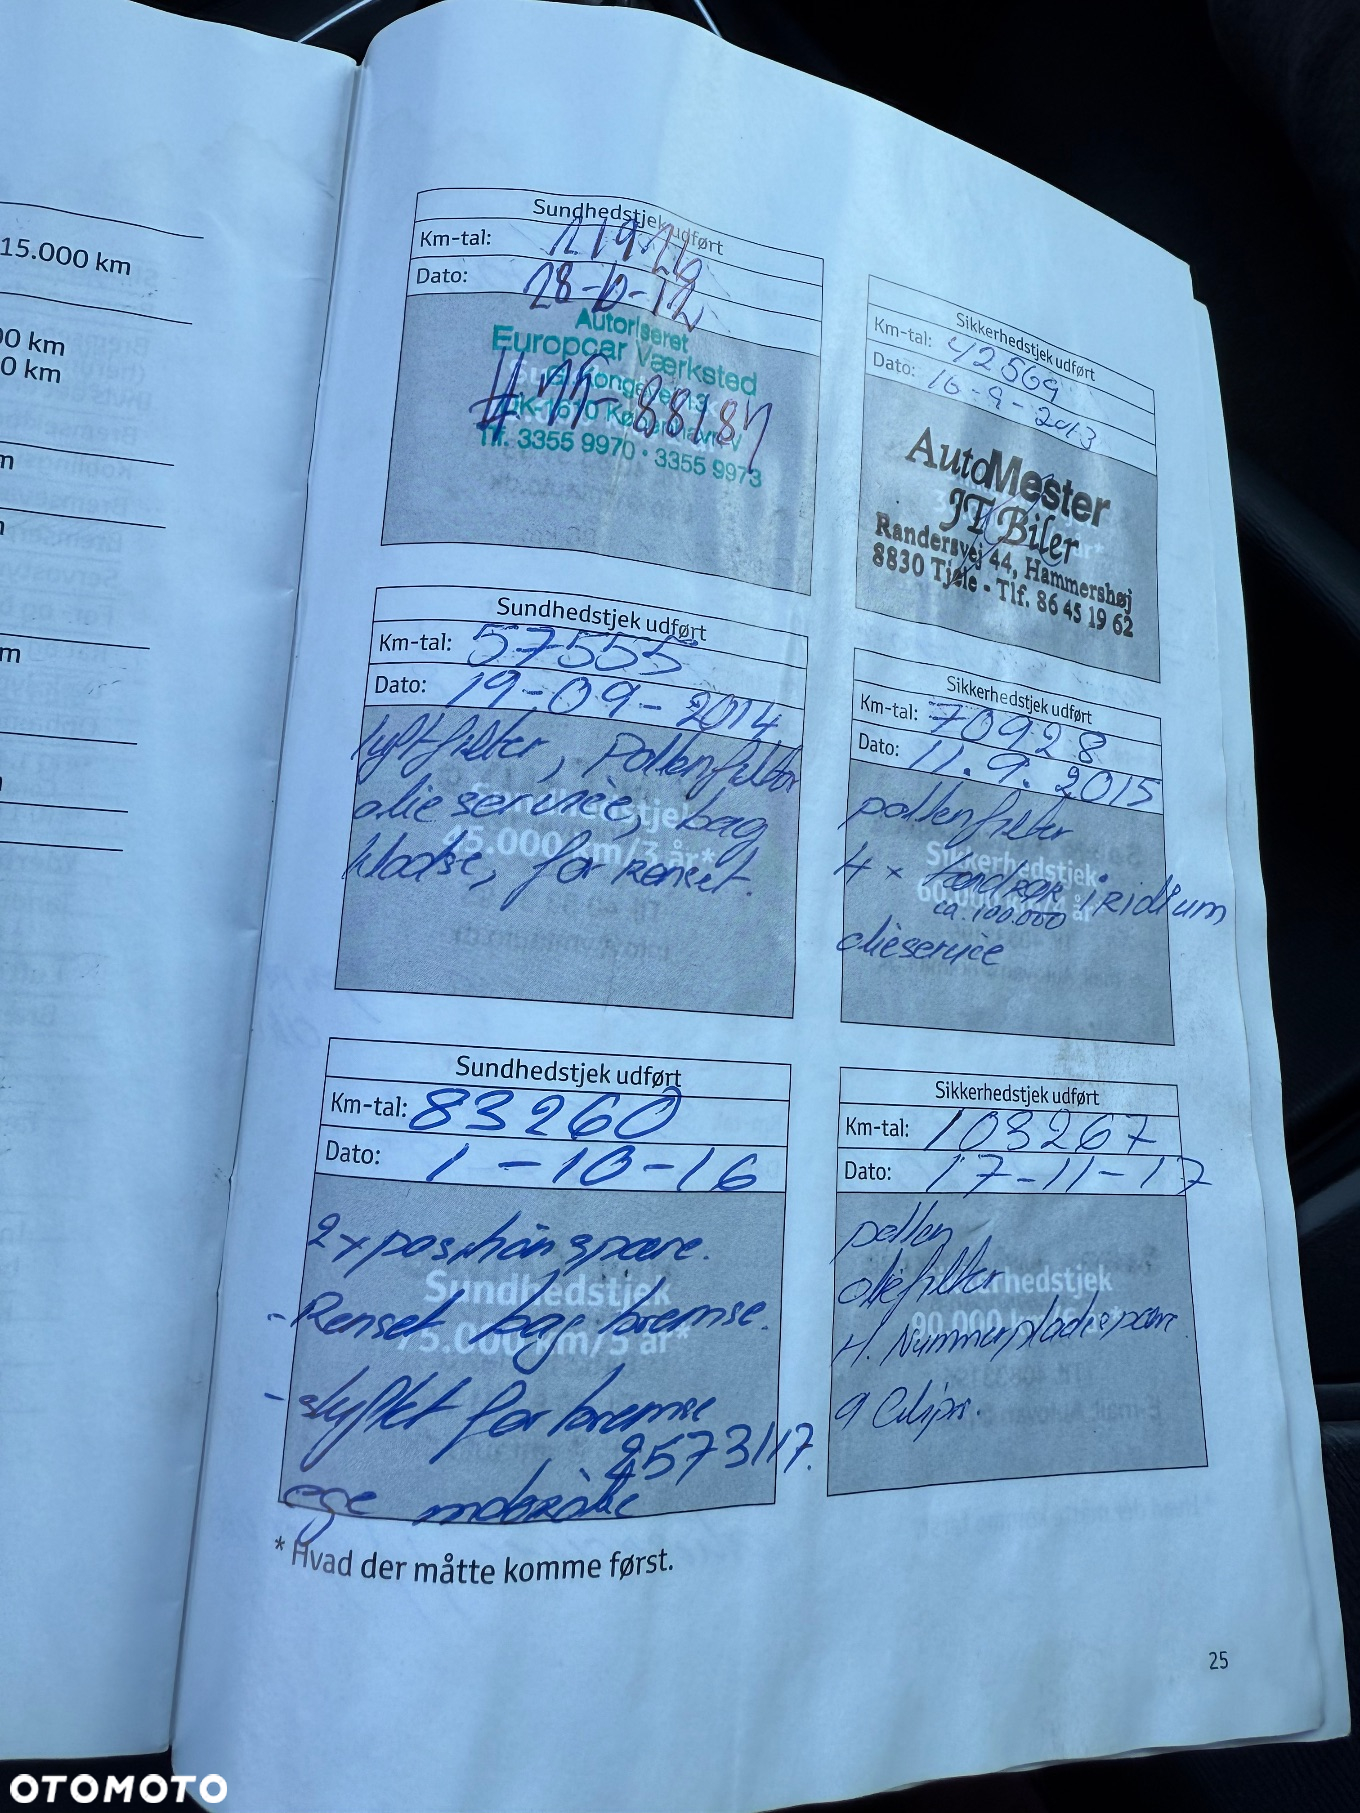 15.000 km
00 km
0 km
m
m
Sundhedstjek udført
Km-tal:
Dato: 28-6-12
Autoriseret
Europcar Værksted
Tlf. 3355 9970 · 3355 9973
Sikkerhedstjek udført
Km-tal: 42569
Dato: 16-9-2013
AutoMester
JT Biler
Randersvej 44, Hammershøj
8830 Tjele - Tlf. 86 45 19 62
Sundhedstjek udført
Km-tal: 57555
Dato: 19-09-2014
luftfilter, Pollenfilter
olieservice, bag
klodse, for renset.
Sundhedstjek
45.000 km/3 år*
Sikkerhedstjek udført
Km-tal: 70928
Dato: 11.9.2015
pollenfilter
4 x tændrør iridium
ca. 100.000
olieservice
Sikkerhedstjek
60.000 km/4 år*
Sundhedstjek udført
Km-tal: 83260
Dato: 1-10-16
2x positionspære.
- Renset bag bremse.
- skyftet for bremse
ege
Sundhedstjek
75.000 km/5 år*
Sikkerhedstjek udført
Km-tal: 103267
Dato: 17-11-17
pollen
oliefilter
H. Nummerpladepære
9 Clips.
Sikkerhedstjek
90.000 km/6 år*
* Hvad der måtte komme først.
25
OTOMOTO